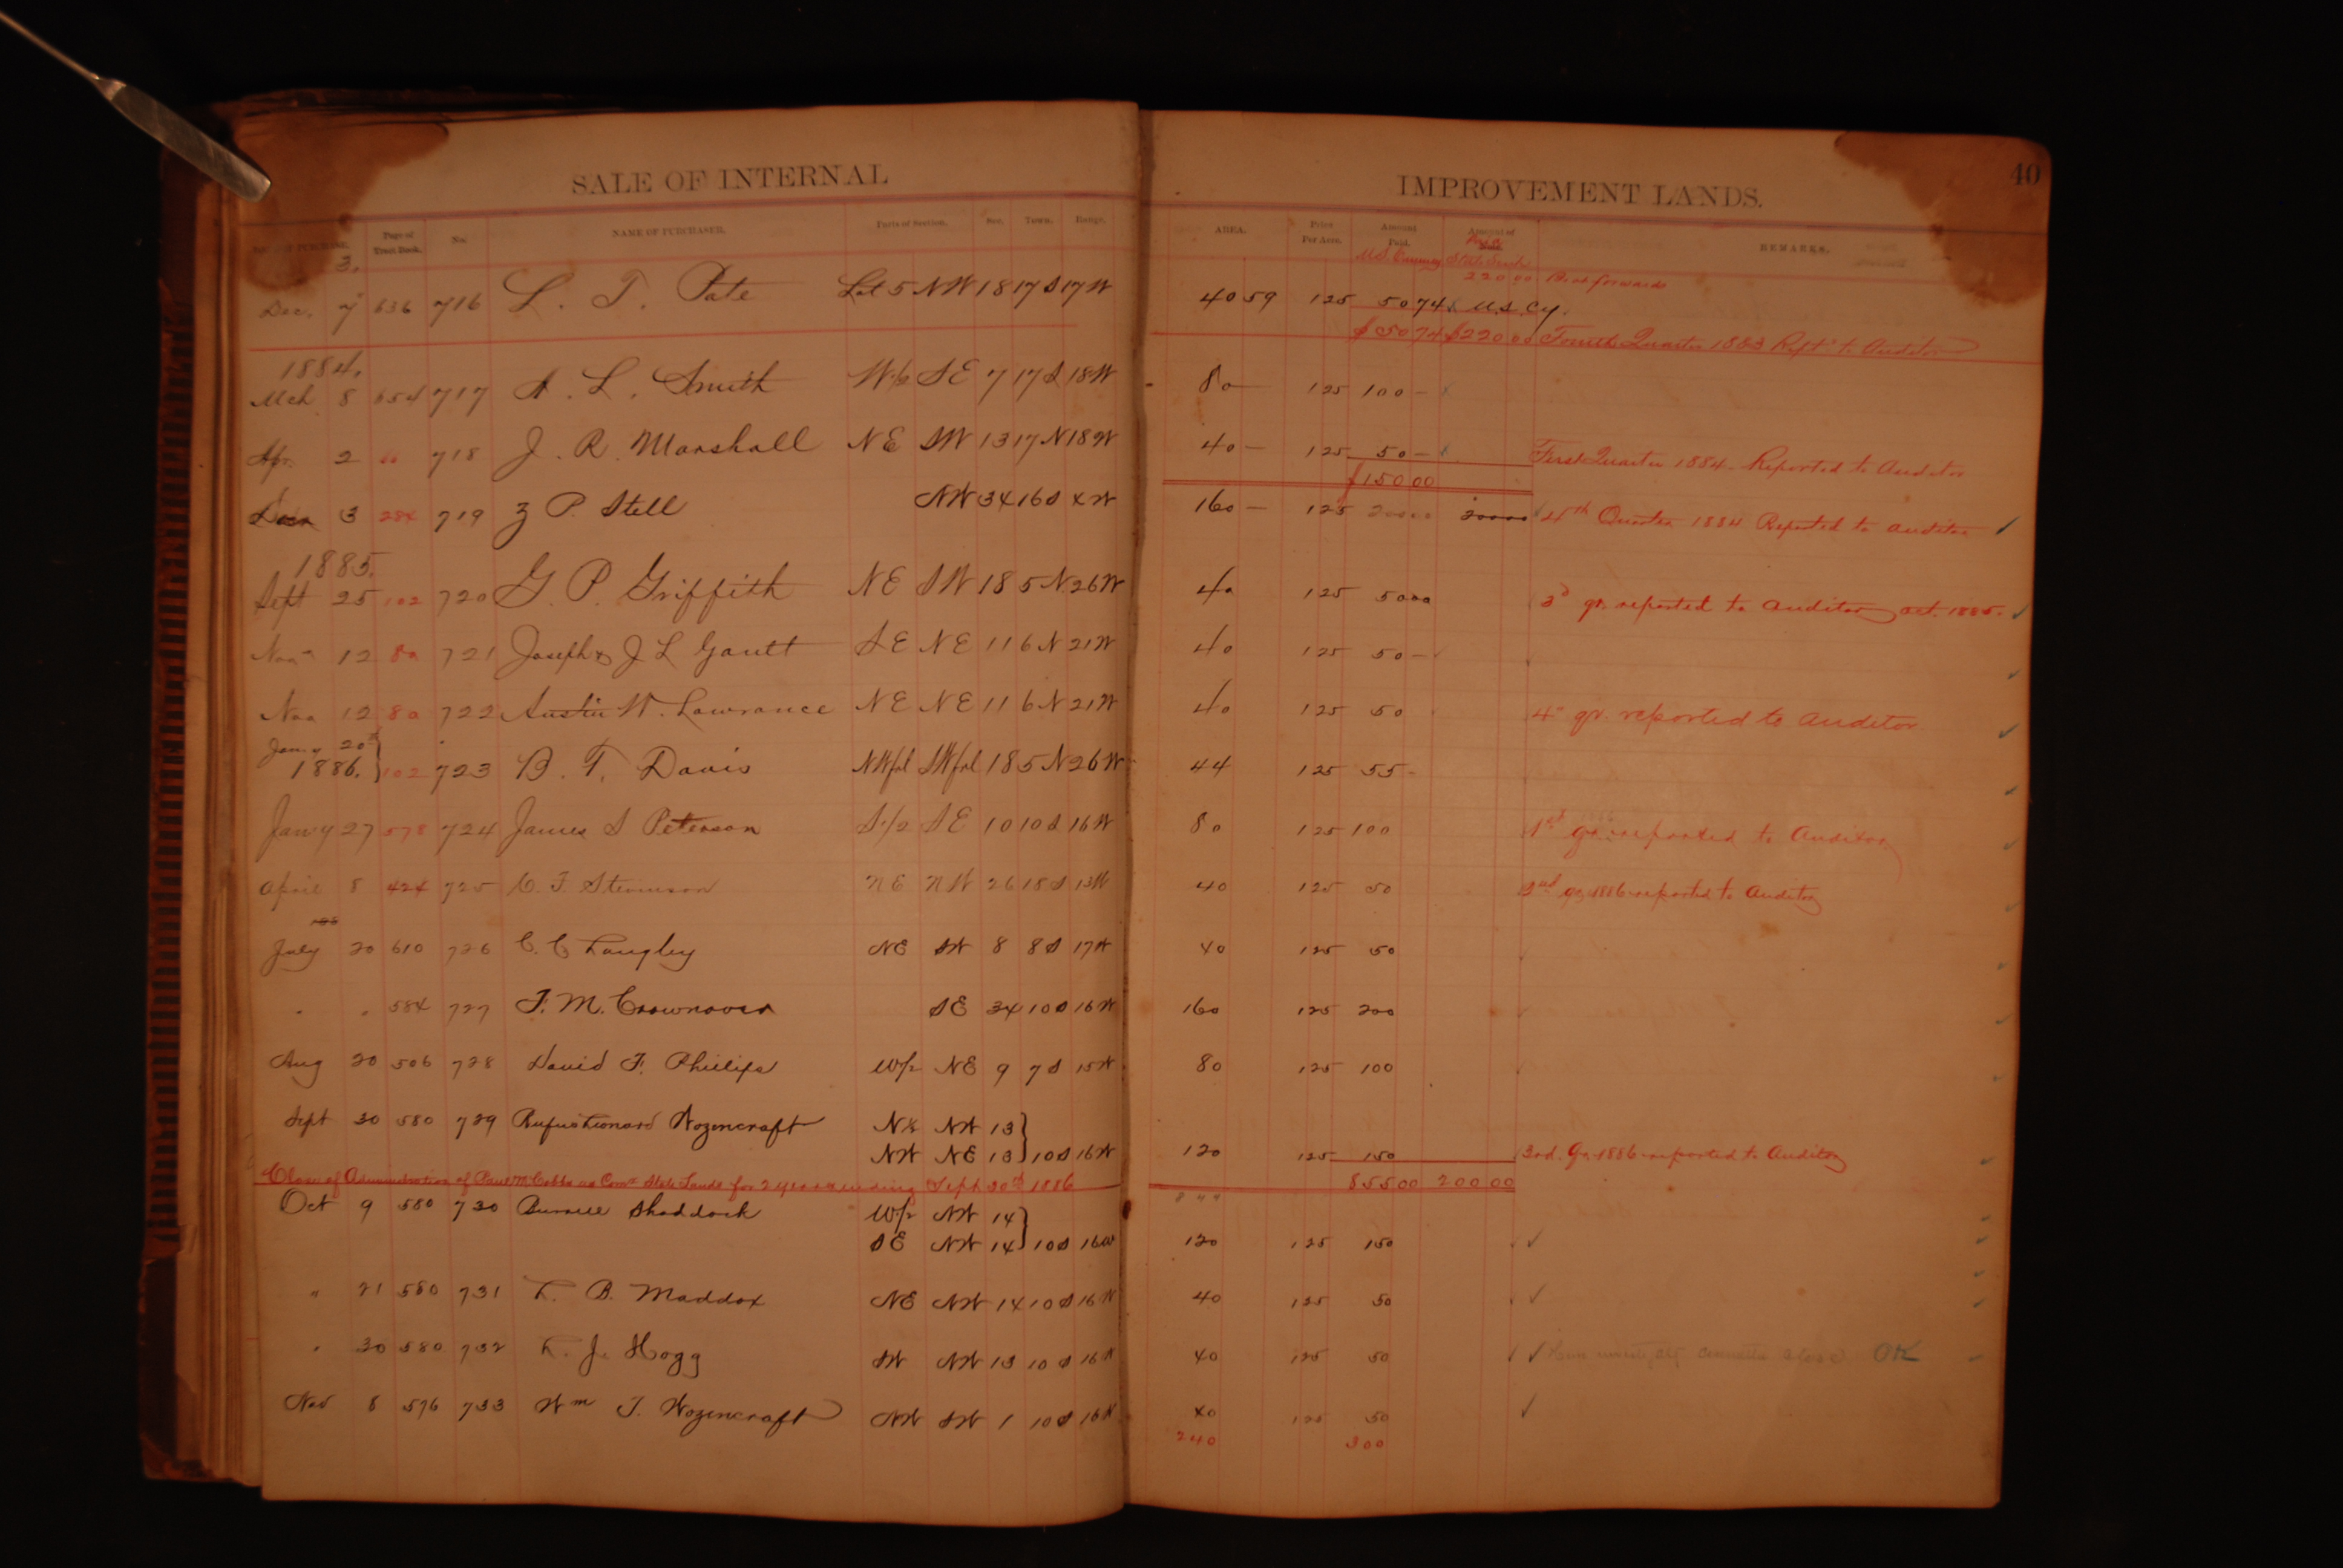 SALE OF INTERNAL IMPROVEMENT LANDS. 40
PURCHASE. Page of Tract Book. No. NAME OF PURCHASER. Parts of Section. Sec. Town. Range. AREA. Price Per Acre. Amount Paid. Amount of REMARKS.
3. 220 00
Dec. 7 636 716 L. T. Pate Lot 5 NW 18 17 S 17 W 40 59 1 25 50 74 U.S. Cy.
$50 74 $220 00 Fourth Quarter 1883 Rept. to Auditor
1884.
Mch 8 654 717 A. L. Smith W 1/2 SE 7 17 S 18 W 80 — 1 25 100 —
Apr. 2 " 718 J. R. Marshall NE SW 13 17 N 18 W 40 — 1 25 50 — First Quarter 1884 Reported to Auditor
$150 00
3 284 719 Z P. Stell NW 34 16 S 4 W 160 — 1 25 200 00 200 00 4th Quarter 1884 Reported to auditor ✓
1885.
Sept 25 102 720 G. P. Griffith NE SW 18 5 N 26 W 40 1 25 50 00 3d qr. reported to auditor oct. 1885. ✓
12 80 721 Joseph & J L Gautt SE NE 11 6 N 21 W 40 1 25 50 —
12 80 722 Austin W. Lawrance NE NE 11 6 N 21 W 40 1 25 50 4" qr. reported to auditor
Jany 20th
1886. } 102 723 B. T. Davis NW frl SW frl 18 5 N 26 W 44 1 25 55 -
Jany 27 578 724 James S Peterson S 1/2 SE 10 10 S 16 W 80 1 25 100 1st qr. reported to Auditor
April 8 424 725 C. F. Stevenson NE NW 26 18 S 13 W 40 1 25 50 2nd qr 1886 reported to Auditor
July 20 610 726 C. C Langley NE SW 8 8 S 17 W 40 1 25 50
" " 584 727 F. M. Crownover SE 34 10 S 16 W 160 1 25 200
Aug 20 506 728 David F. Philips W/2 NE 9 7 S 15 W 80 1 25 100
Sept 30 580 729 Rufus Leonard Wozencraft N 1/2 NW 13 }
NW NE 13 } 10 S 16 W 120 1 25 150 3rd. Qr 1886 reported to Auditor
Close of Administration of Paul M. Cobbs as Comr State Lands for 2 years ending Sept 30th 1886 855 00 200 00
Oct 9 580 730 Burrell Shaddock W/2 NW 14 }
SE NW 14 } 10 S 16 W 120 1 25 150 ✓
" 21 580 731 L. B. Maddox NE NW 14 10 S 16 W 40 1 25 50 ✓
" 30 580 732 L. J. Hogg SW NW 13 10 S 16 W 40 1 25 50 ✓ OK
Nov 8 576 733 Wm T. Wozencraft NW SW 1 10 S 16 W 40 1 25 50 ✓
240 300